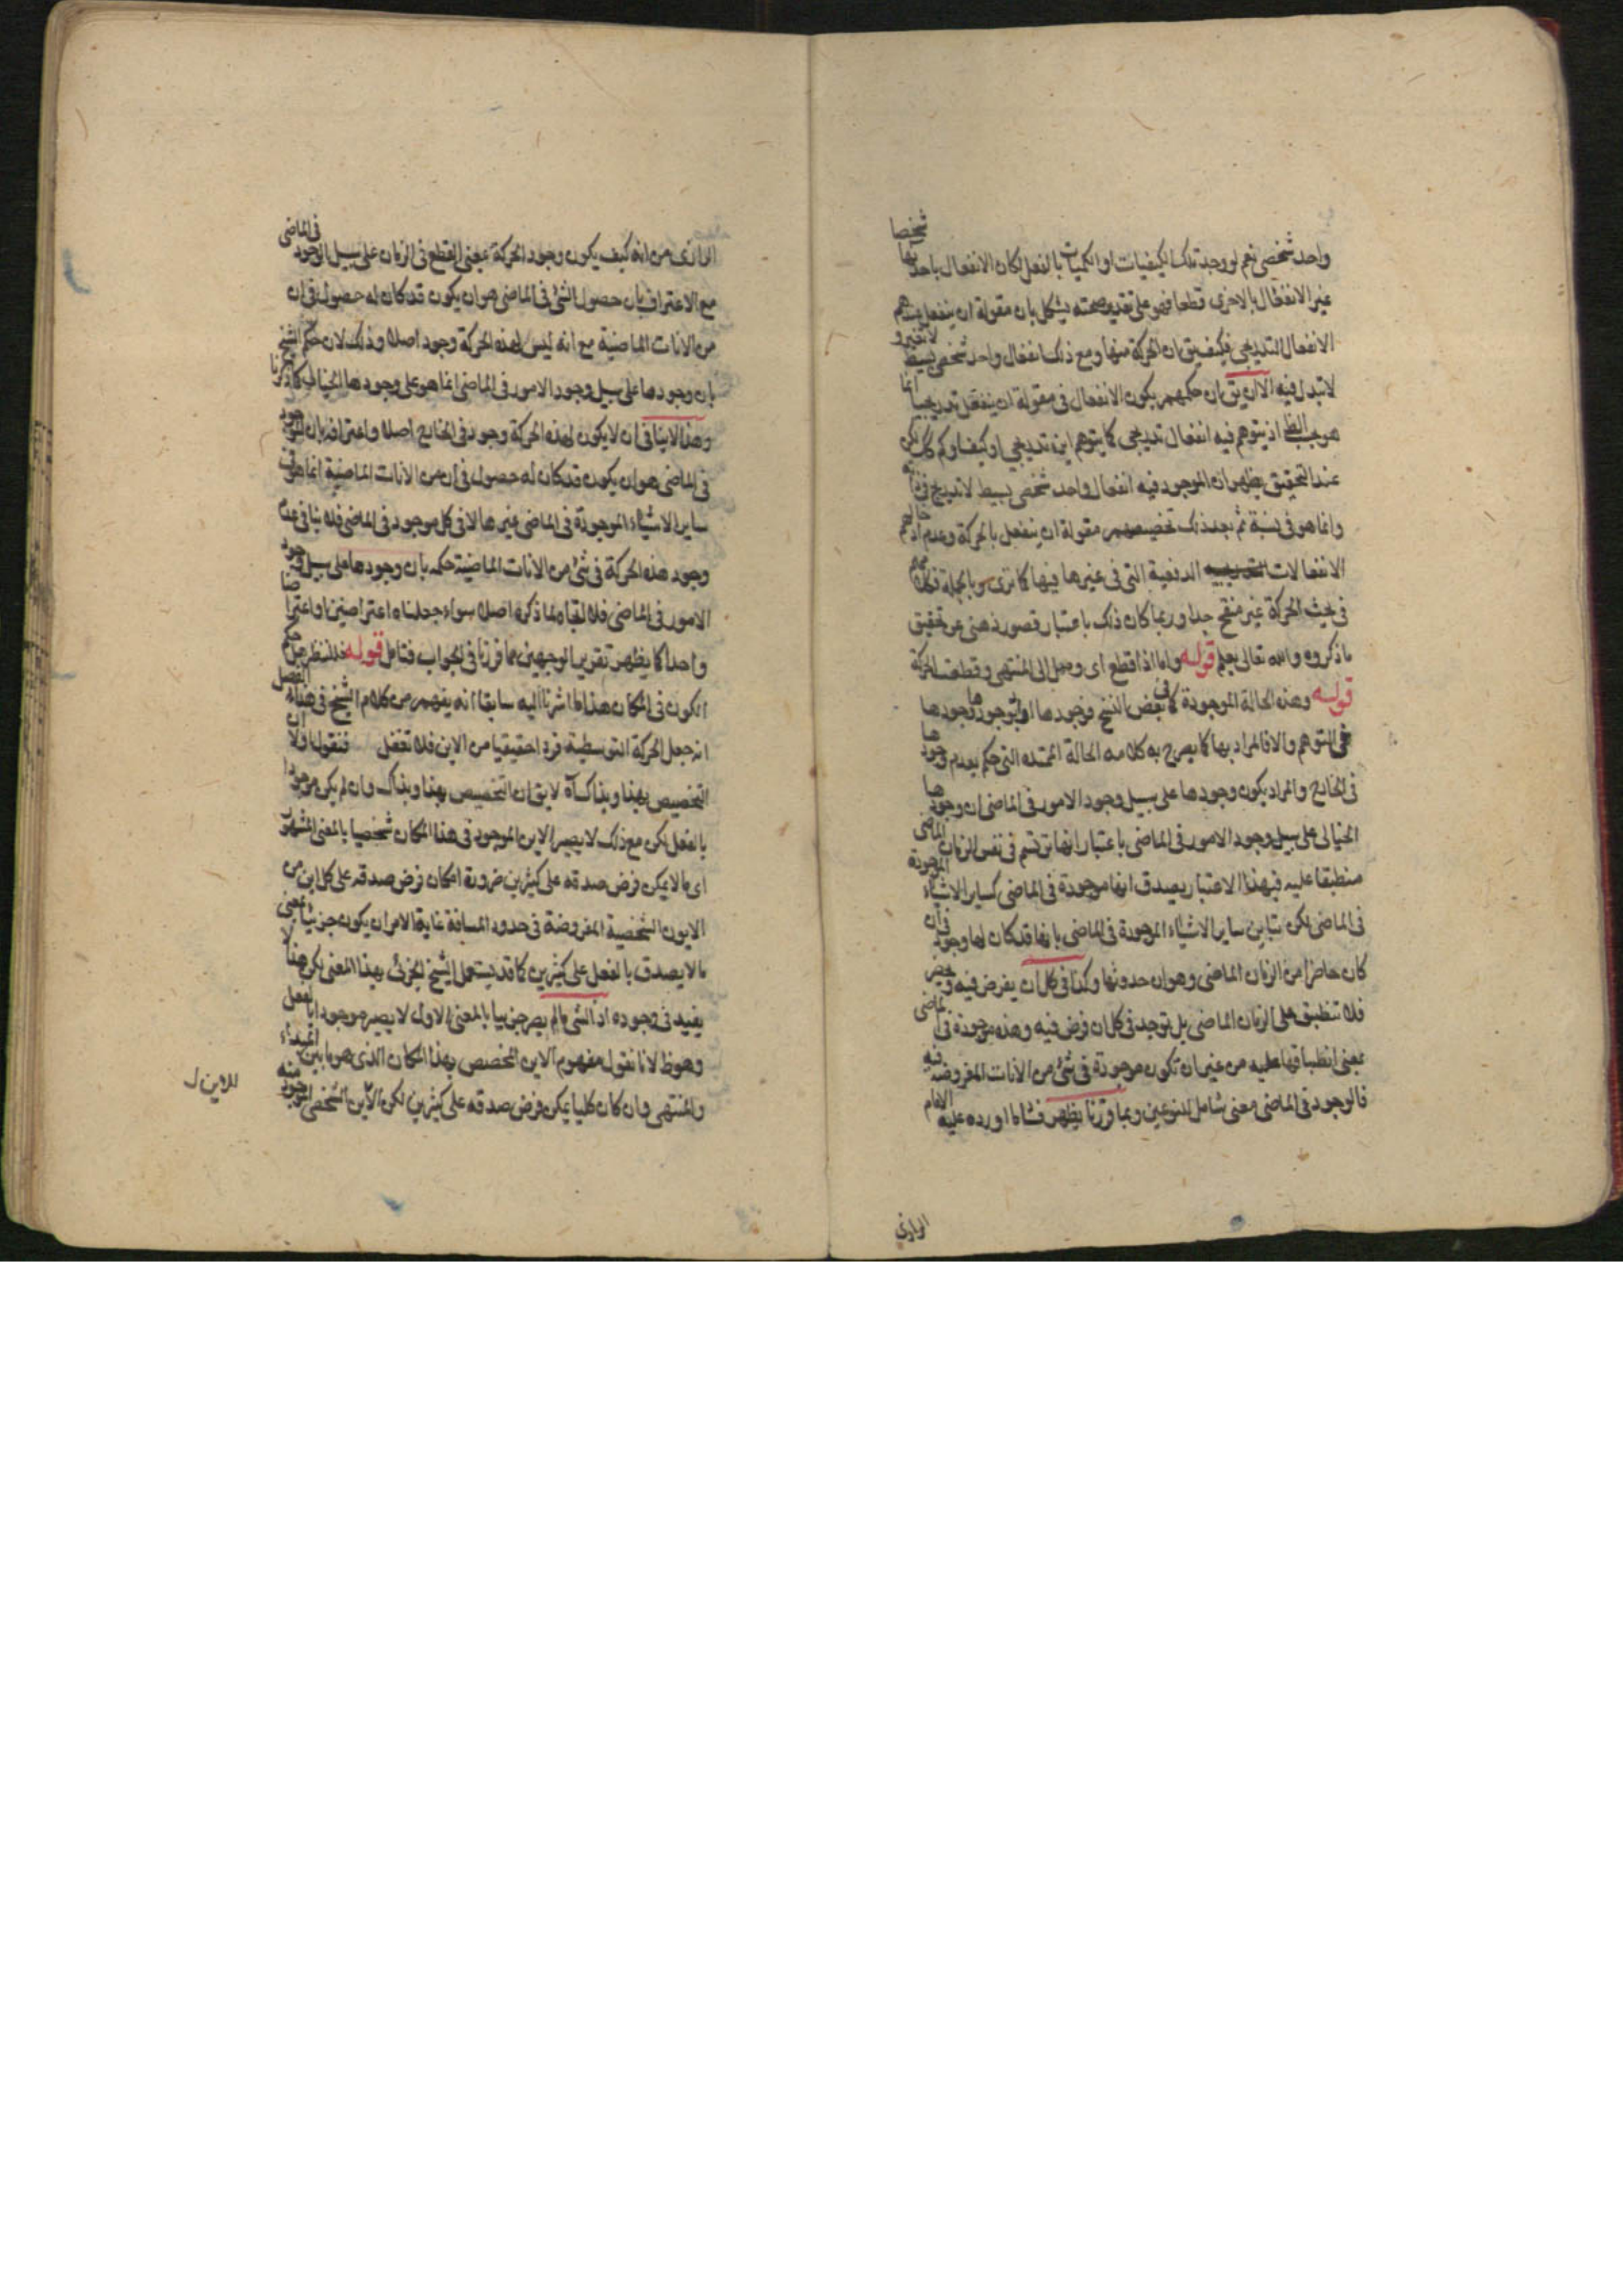 واحد شخصي نعم لو وجد تلك الكيفيات او الكميات بالفعل لكان الانفعال باحديها شخصا
غير الانفعال بالاخرى قطعا فهو على تقدير صحته يشكل بان مقولة ان ينفعل عندهم
الانفعال التدريجي فكيف يق ان الحركة منها ومع ذلك انفعال واحد شخصي بسيط لا تغير و
لا تبدل فيه الا ان يق بان حكمهم بكون الانفعال في مقولة ان ينفعل تدريجيا انما
هو بحسب الظ اذ يتوهم فيه انفعال تدريجي كما يتوهم اين تدريجي او كيف او كم كك لكن
عند التحقيق يظهر ان الموجود فيه انفعال واحد شخصي بسيط لا تدريج في ذاته
وانما هو في نسبة ثم بعد ذلك تخصيصهم مقولة ان ينفعل بالحركة وعدم ادخالهم
الانفعالات الدفعية التي في غيرها فيها كما ترى وبالجملة فكلامهم
في بحث الحركة غير منقح جدا وربما كان ذلك باعتبار قصور ذهني عن تحقيق
ما ذكروه والله تعالى يعلم قوله واما اذا قطع اى وصل الى المنتهى وقطعت الحركة
قوله وهذه الحالة الموجودة كما في بعض النسخ فوجودها او لوجودها وجودها
في التوهم والا فالمراد بها كما يصرح به كلامه الحالة الممتدة التي حكم بعدم وجودها
في الخارج والمراد بكون وجودها على سبيل وجود الامور في الماضي ان وجودها
الخيالى على سبيل وجود الامور في الماضي باعتبار انها ترتسم في نفس الزمان الماضى
منطبقا عليه فبهذا الاعتبار يصدق انها موجودة في الماضى كساير الاشياء الموجودة
في الماضى لكن يتباين ساير الاشياء الموجودة في الماضى بانها قد كان لها وجود في آن
كان حاضرا من الزمان الماضى وهو ان حدوثها وكذا في كل ان يفرض فيه وبعض
فلا تنطبق على الزمان الماضى بل توجد في كل ان فرض فيه وهذه موجودة في الماضى
بمعنى انطباقها عليه من غير ان تكون موجودة في شئ من الانات المفروضة فيه
فالوجود في الماضى معنى شامل للنوعين وبما قررنا يظهر فساد ما اورده عليه الامام
الرازى
الرازى من انه كيف يكون وجود الحركة بمعنى القطع في الزمان على سبيل الوجود في الماضى
مع الاعتراف بان حصول الشئ في الماضى هو ان يكون قد كان له حصول في ان
من الانات الماضية مع انه ليس لهذه الحركة وجود اصلا وذلك لان حكم الشيخ
بان وجودها على سبيل وجود الامور في الماضى انما هو على وجودها الخيالى كما ذكرنا
وهذا لا ينافى ان لا يكون لهذه الحركة وجود في الخارج اصلا واعترافه بان الوجود
في الماضى هو ان يكون قد كان له حصول في ان من الانات الماضية انما هو في
ساير الاشياء الموجودة في الماضى غيرها لا في كل موجود في الماضى فلا ينافى عدم
وجود هذه الحركة في شئ من الانات الماضية حكمه بان وجودها على سبيل وجود
الامور في الماضى فلا اتجاه لما ذكره اصلا سواء جعلناه اعتراضين او اعتراضا
واحدا كما يظهر تقرير الوجهين مما قررنا في الجواب فتامل قوله فلننظر هل حكم
الكون في المكان هذا ما اشرنا اليه سابقا انه يفهم من كلام الشيخ في هذا الفصل
انه جعل الحركة التوسطية فردا حقيقيا من الاين فلا تغفل فنقول اولا ان
التخصيص بهذا وبذاك آه لا يق ان التخصيص بهذا وبذاك وان لم يكن موجودا
بالفعل لكن مع ذلك لا يصير الاين الموجود في هذا المكان شخصيا بالمعنى المشهور
اى ما لا يمكن فرض صدقه على كثيرين ضرورة امكان فرض صدقه على كل اين من
الايون الشخصية المفروضة في حدود المسافة غاية الامر ان يكون جزئيا بمعنى
ما لا يصدق بالفعل على كثيرين كما قد يستعمل الشيخ الجزئى بهذا المعنى لكن هذا لا
يفيد في وجوده اذ الشى ما لم يصر جزئيا بالمعنى الاول لا يصير موجودا بالفعل
وهو ظ لانا نقول مفهوم الاين المخصص بهذا المكان الذى هو ما بين المبداء
والمنتهى وان كان كليا يمكن فرض صدقه على كثيرين لكن الاين الشخصى الموجود منه
للاين ل